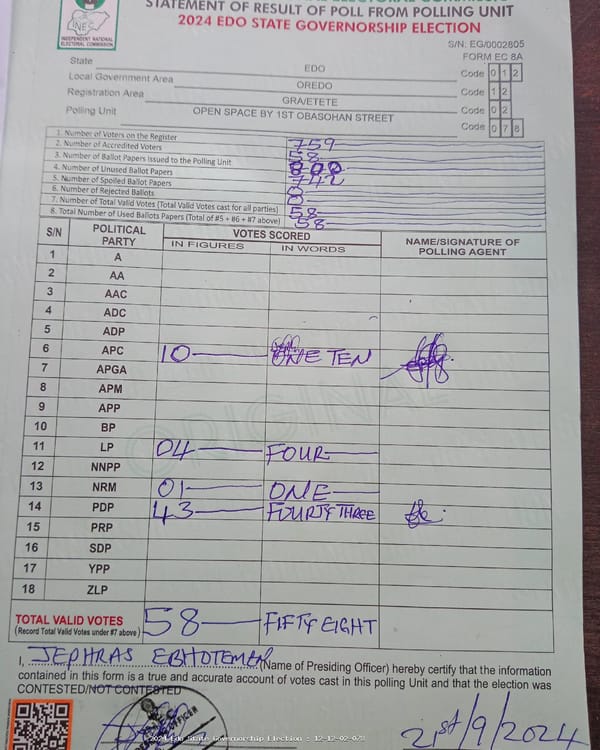 STATEMENT OF RESULT OF POLL FROM POLLING UNIT
2024 EDO STATE GOVERNORSHIP ELECTION
INEC
INDEPENDENT NATIONAL
ELECTORAL COMMISSION
S/N: EG/0002805
FORM EC 8A
State EDO Code 0 1 2
Local Government Area OREDO Code 1 2
Registration Area GRA/ETETE Code 0 2
Polling Unit OPEN SPACE BY 1ST OBASOHAN STREET Code 0 7 8
1. Number of Voters on the Register 759
2. Number of Accredited Voters 58
3. Number of Ballot Papers issued to the Polling Unit 800
4. Number of Unused Ballot Papers 742
5. Number of Spoiled Ballot Papers 0
6. Number of Rejected Ballots 0
7. Number of Total Valid Votes (Total Valid Votes cast for all parties) 58
8. Total Number of Used Ballots Papers (Total of #5 + #6 + #7 above) 58
S/N POLITICAL PARTY VOTES SCORED NAME/SIGNATURE OF POLLING AGENT
IN FIGURES IN WORDS
1 A
2 AA
3 AAC
4 ADC
5 ADP
6 APC 10 ONE TEN
7 APGA
8 APM
9 APP
10 BP
11 LP 04 FOUR
12 NNPP
13 NRM 01 ONE
14 PDP 43 FOURTY THREE
15 PRP
16 SDP
17 YPP
18 ZLP
ORIGINAL
TOTAL VALID VOTES 58 FIFTY EIGHT
(Record Total Valid Votes under #7 above)
I, JEPHRAS (Name of Presiding Officer) hereby certify that the information
contained in this form is a true and accurate account of votes cast in this polling Unit and that the election was
CONTESTED/NOT CONTESTED
21st/9/2024
2024 Edo State Governorship Election : 12-12-02-078